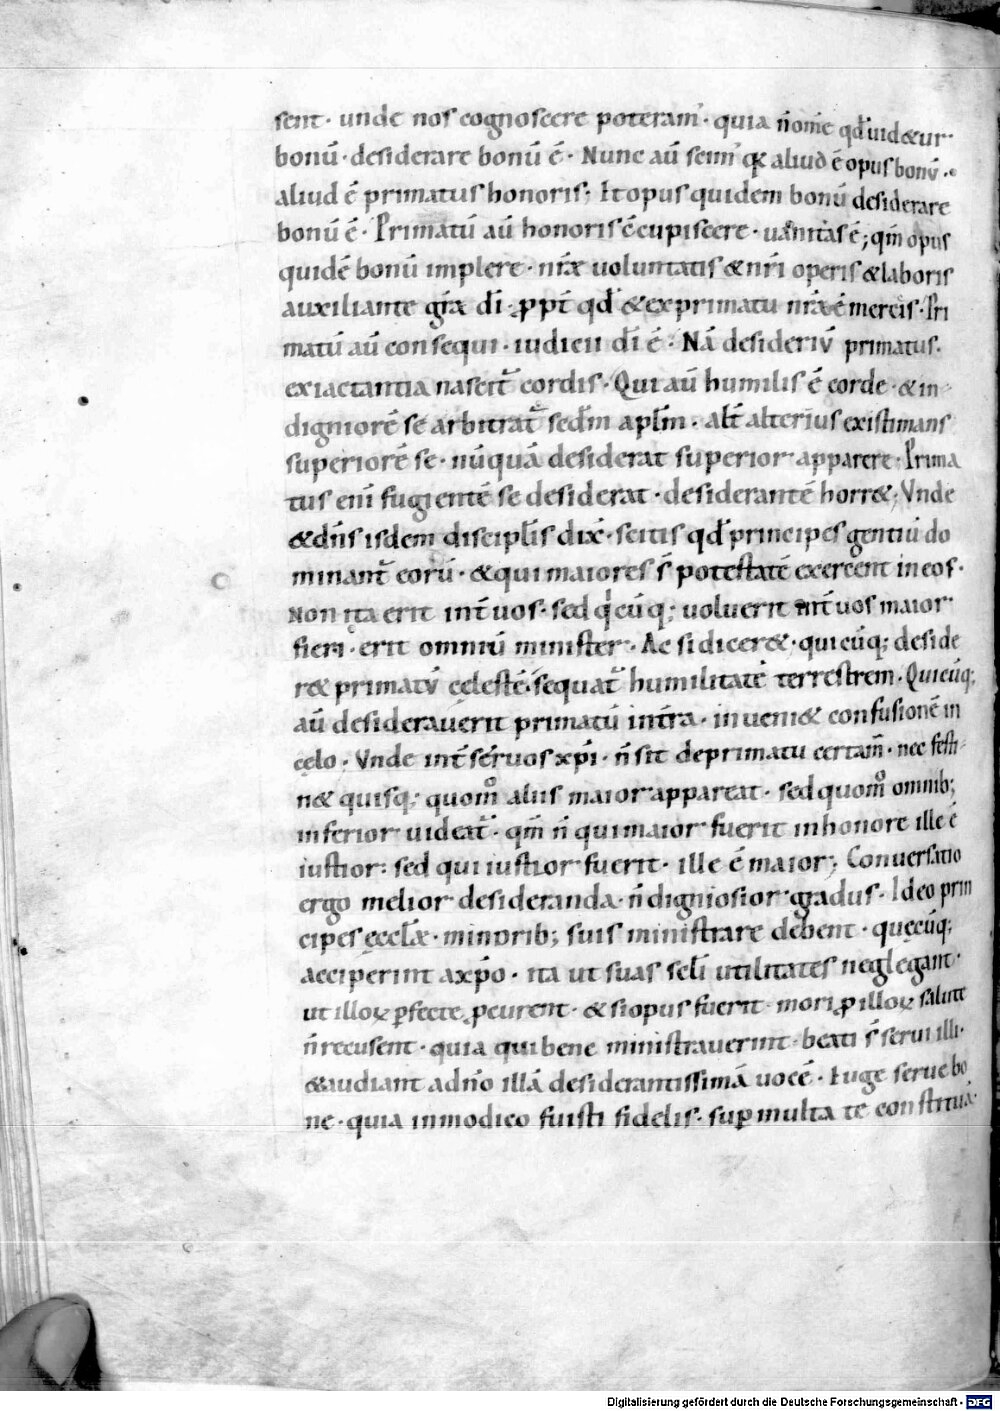 sent · unde nos cognoscere poteram᾽ · quia ñ om̅e qđ uid&ur ·
bonū · desiderare bonū ē · Nunc aū sem᾽ qꝛ aliud ē opus bonū ·
aliud ē primatus honoris ; Et opus quidem bonū desiderare
bonū ē · Primatū aū honoris c̄cupiscere · uanitas ē ; qm̄ opus
quidē bonū implere · nr̄æ uoluntatis & nr̄i operis & laboris
auxiliante gr̄a dī · ꝓpt̄ qđ & ex primatu nr̄a ē merces · Pri
matū aū consequi · iudicii dī ē · Nā desideriū primatus ·
ex iactantia nascit᷑ cordis · Qui aū humilis ē corde · & in
digniorē se arbitrat᷑ sedm̄ aplm̄ · alt̄ alterius existimans
superiorē se · nūquā desiderat superior apparere · Prima
tus eni᷑ fugientē se desiderat · desiderantē horr& ; Vnde
& dn̄s isdem discipl̄is dix̄ · scitis qđ principes gentiū do
minant᷑ eorū · & qui maiores s̄ potestatē exercent in eos ·
Non ita erit int̄ uos · sed q᷑cūq; uoluerit int̄ uos maior
fieri · erit omniū minister · Ac si dicer& · quicūq; deside
r& primatū cęlestē · sequat᷑ humilitatē terrestrem · Quicūq;
aū desiderauerit primatū in tr̄a · inueni& confusionē in
cęlo · Vnde int̄ seruos xp̄i · ñ sit de primatu certam̄ · nec festi
n& quisq; quom̊ aliis maior appareat · sed quom̊ omnib;
inferior uideat᷑ · qm̄ ñ qui maior fuerit in honore ille ē
iustior : sed qui iustior fuerit · ille ē maior ; Conuersatio
ergo melior desideranda · ñ digniosior gradus · Ideo prin
cipes ęccl̄æ · minorib; suis ministrare debent · quęcūq;
acciperint a xp̄o · ita ut suas scl̄i utilitates neglegant ·
ut illoꝝ ꝑfecte ꝓcurent · & si opus fuerit · mori ꝓ illoꝝ salute
ñ recusent · quia qui bene ministrauerint · beati s̄ serui illi ·
& audiant a dn̄o illā desiderantissimā uocē · Euge serue bo
ne · quia in modico fuisti fidelis · suꝑ multa te constituā ·
Digitalisierung gefördert durch die Deutsche Forschungsgemeinschaft - DFG